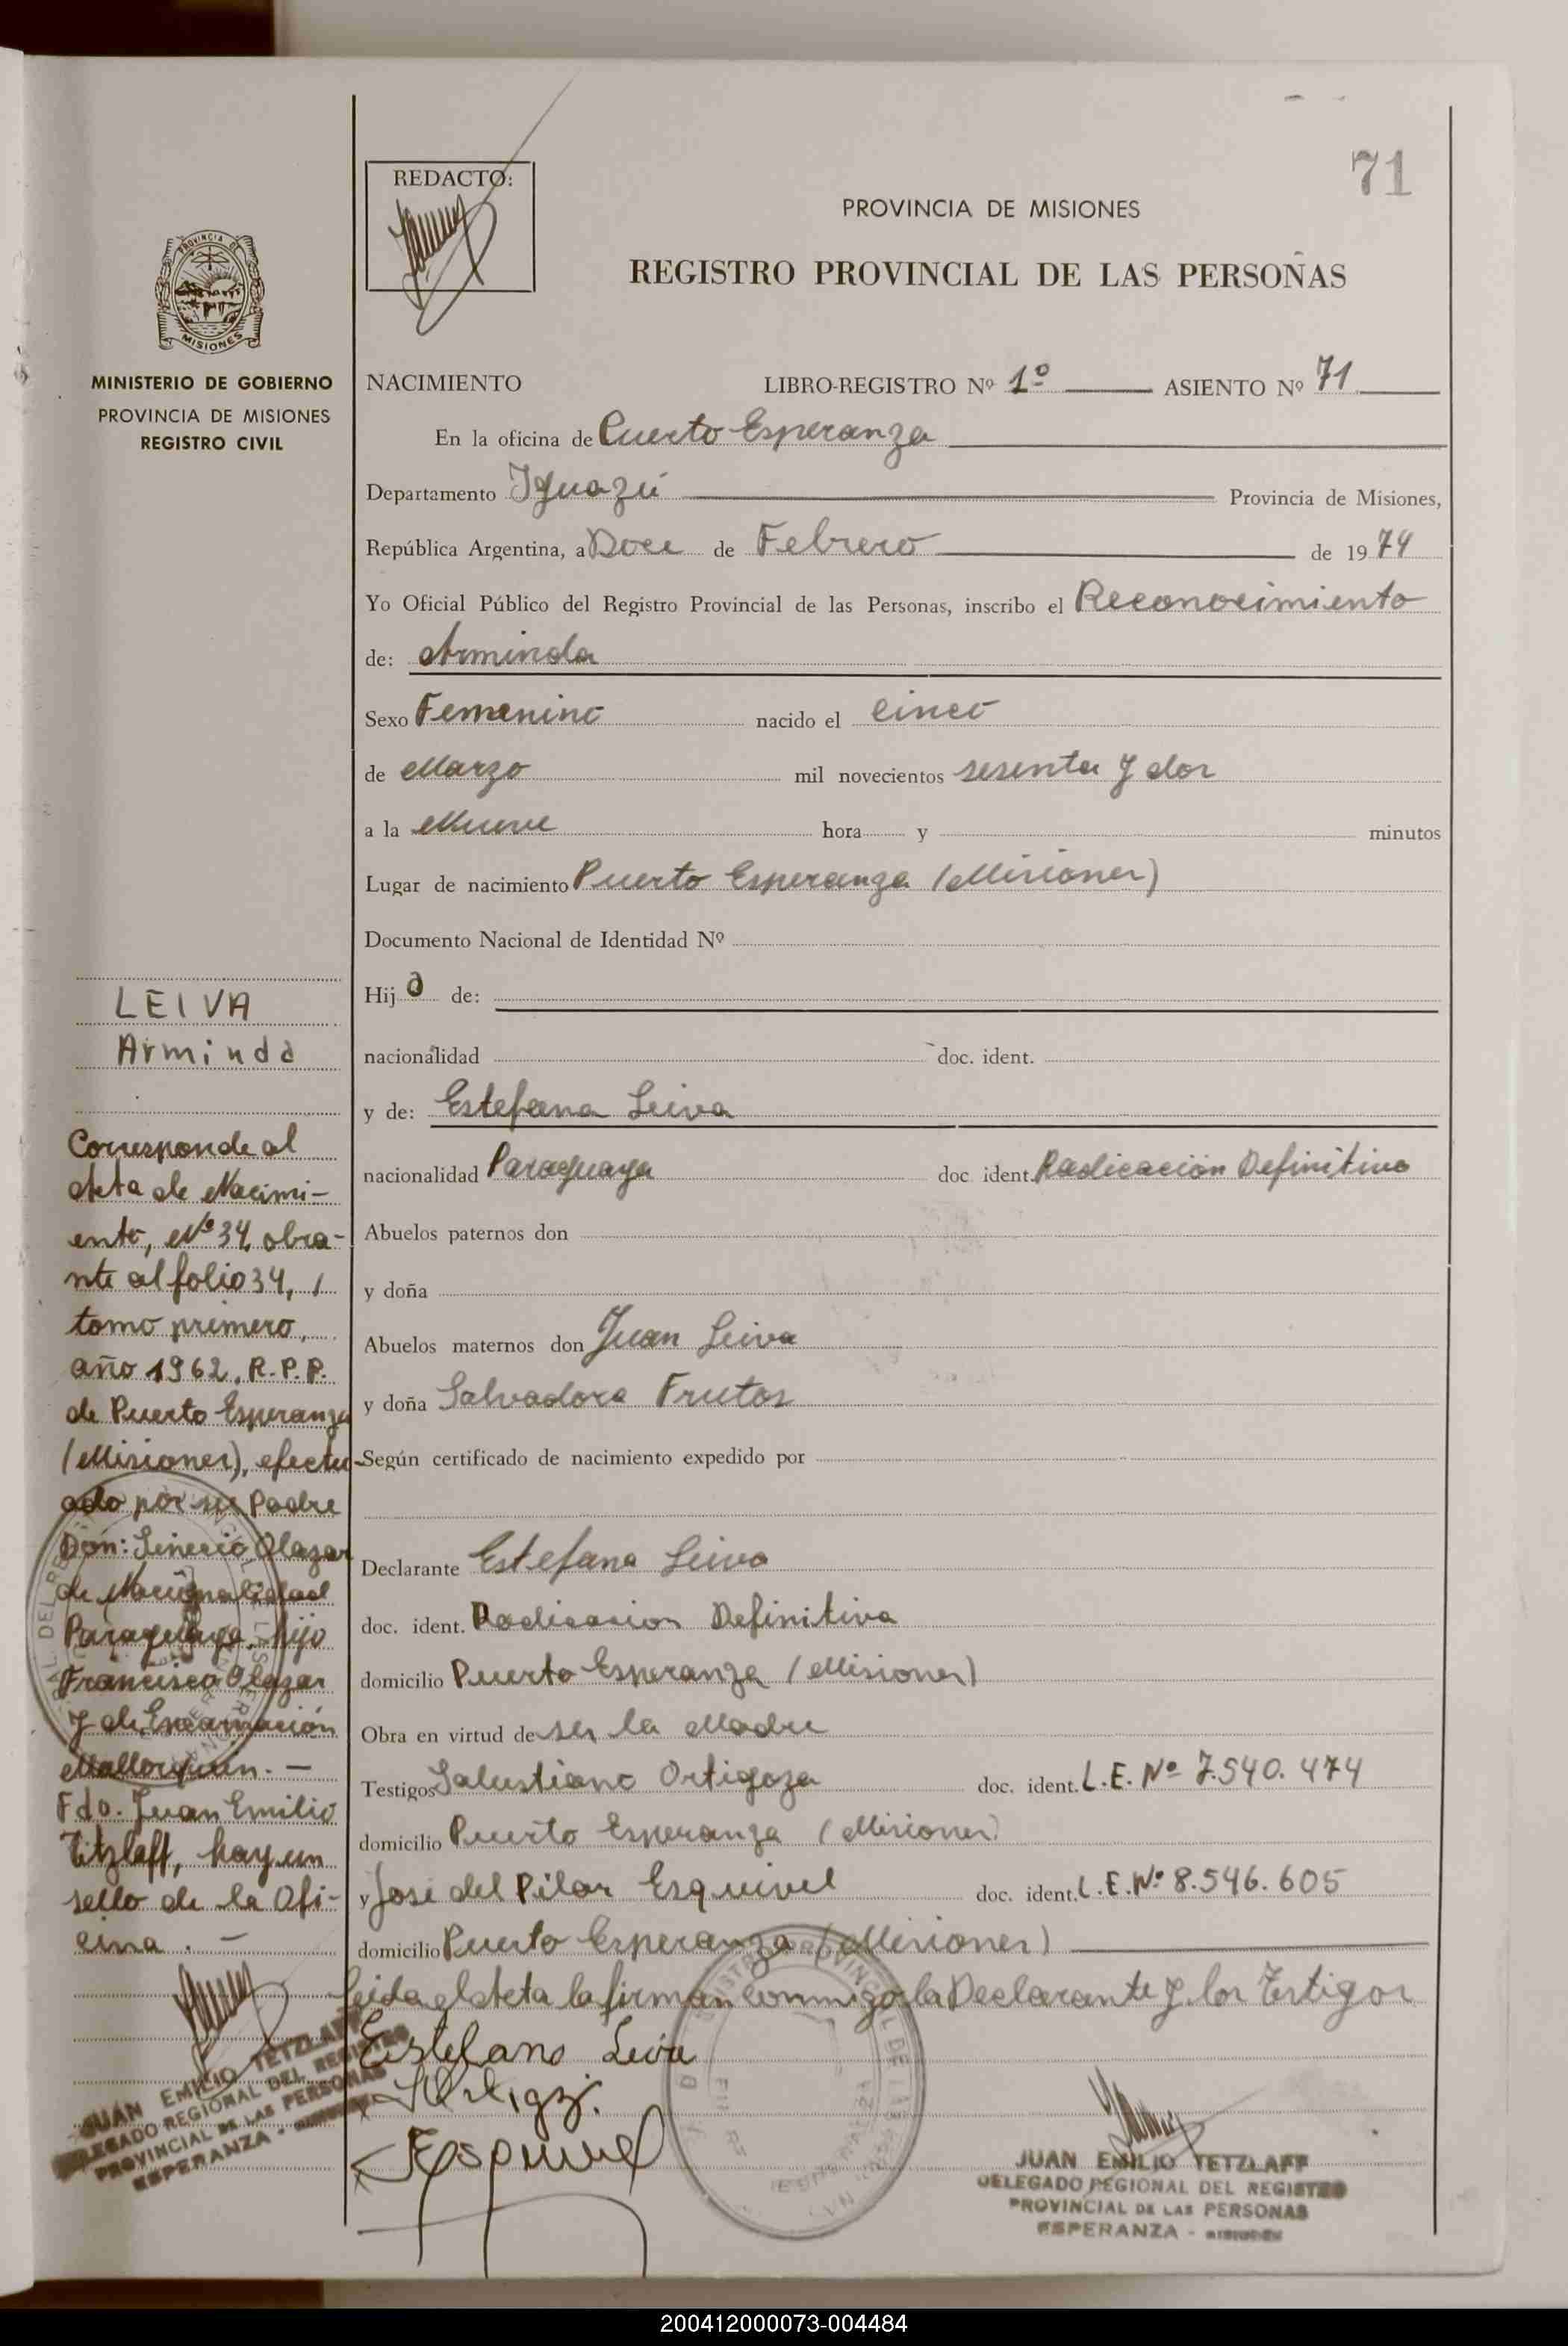 71
REDACTO:
PROVINCIA DE MISIONES
REGISTRO PROVINCIAL DE LAS PERSONAS
PROVINCIA DE
MISIONES
MINISTERIO DE GOBIERNO
PROVINCIA DE MISIONES
REGISTRO CIVIL
NACIMIENTO LIBRO-REGISTRO Nº 1º ASIENTO Nº 71
En la oficina de Puerto Esperanza
Departamento Iguazú Provincia de Misiones,
República Argentina, a Doce de Febrero de 1974
Yo Oficial Público del Registro Provincial de las Personas, inscribo el Reconocimiento
de: Arminda
Sexo Femenino nacido el cinco
de Marzo mil novecientos sesenta y dos
a la Nueve hora y minutos
Lugar de nacimiento Puerto Esperanza (Misiones)
Documento Nacional de Identidad Nº
Hija de:
nacionalidad doc. ident.
y de: Estefana Leiva
nacionalidad Paraguaya doc. ident. Radicación Definitiva
Abuelos paternos don
y doña
Abuelos maternos don Juan Leiva
y doña Salvadora Frutos
Según certificado de nacimiento expedido por
Declarante Estefana Leiva
doc. ident. Radicacion Definitiva
domicilio Puerto Esperanza (Misiones)
Obra en virtud de ser la Madre
Testigos Salustiano Ortigoza doc. ident. L.E. Nº 7.540.474
domicilio Puerto Esperanza (Misiones)
y José del Pilar Esquivel doc. ident. L.E. Nº 8.546.605
domicilio Puerto Esperanza (Misiones)
Leida el Acta la firman conmigo la Declarante y los Testigos
Estefana Leiva
Esquivel
LEIVA
Arminda
Corresponde al
Acta de Nacimi-
ento, Nº 34, obra-
nte al folio 34,
tomo primero,
año 1962, R.P.P.
de Puerto Esperanza
(Misiones), efectu-
ado por su Padre
Don: Olazar
de Nacionalidad
Paraguaya, hijo
Francisco Olazar
y de Encarnación
Mallorquin. —
Fdo. Juan Emilio
Tetzlaff, hay un
sello de la Ofi-
cina. —
JUAN EMILIO TETZLAFF
DELEGADO REGIONAL DEL REGISTRO
PROVINCIAL DE LAS PERSONAS
ESPERANZA -
JUAN EMILIO TETZLAFF
DELEGADO REGIONAL DEL REGISTRO
PROVINCIAL DE LAS PERSONAS
ESPERANZA - MISIONES
200412000073-004484